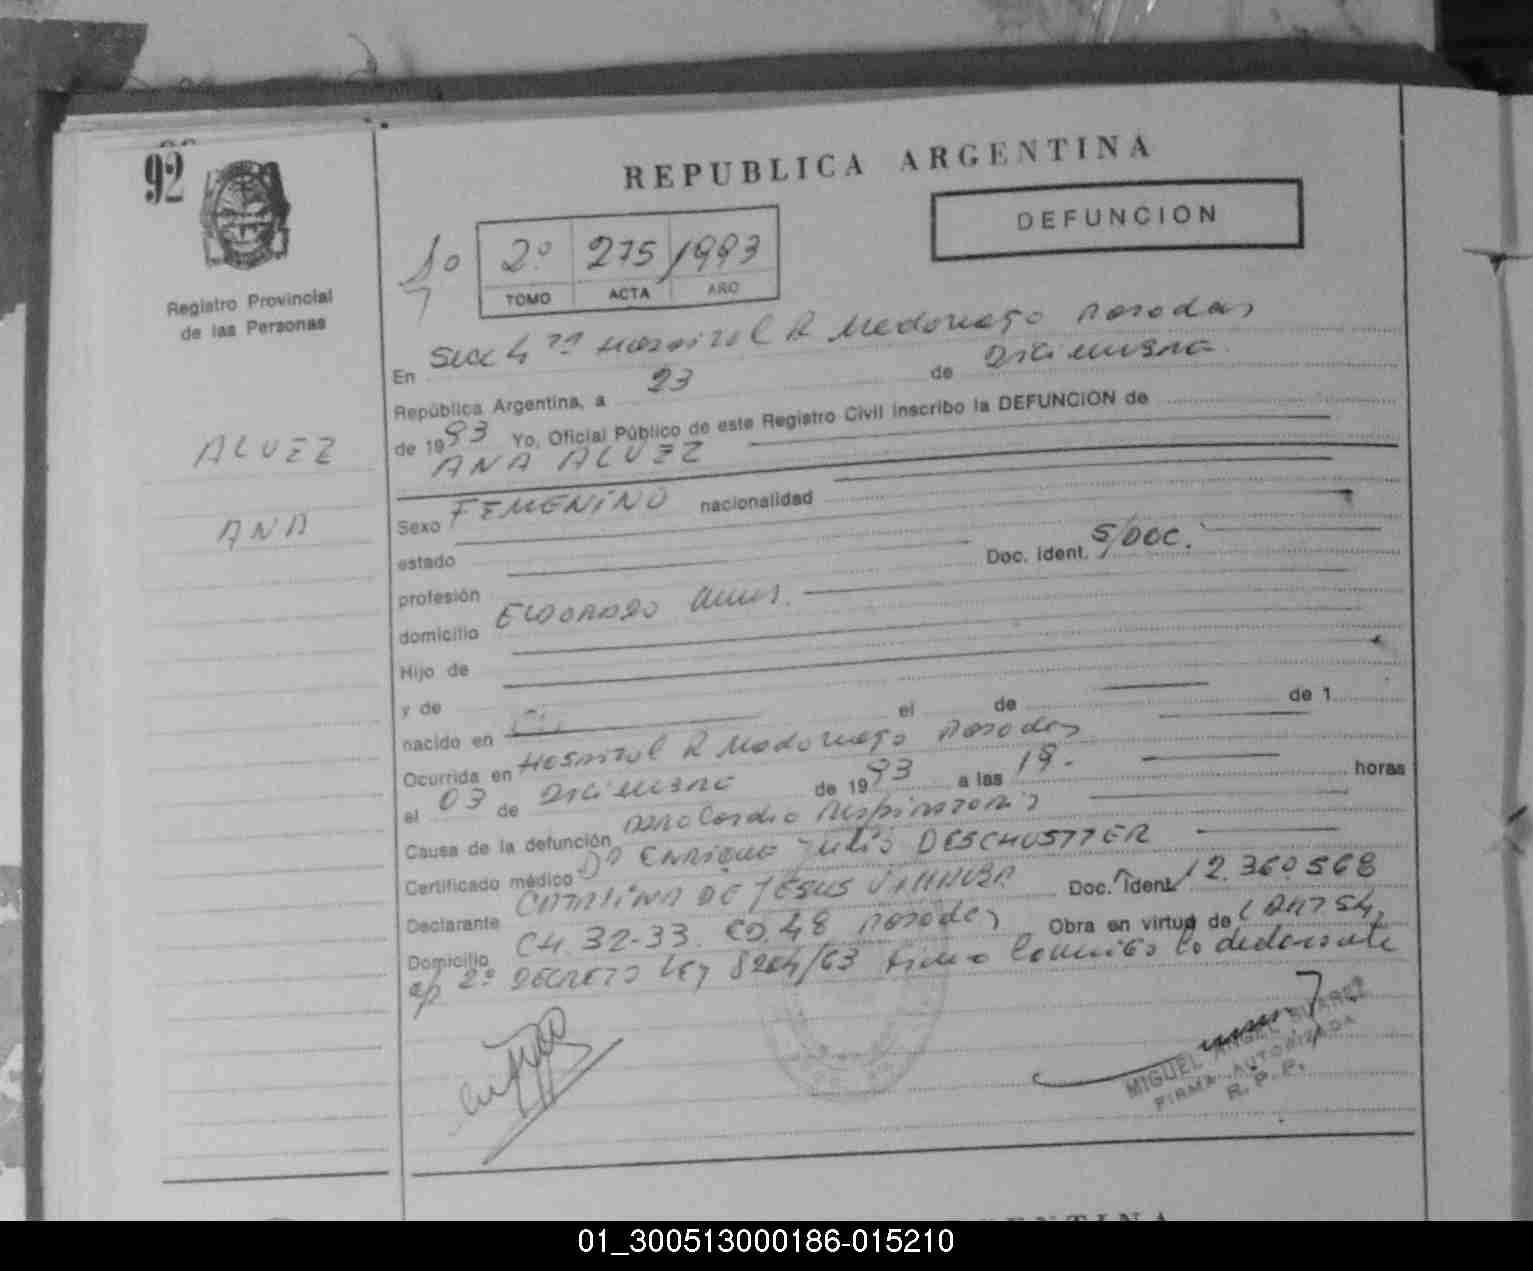 92
REPUBLICA ARGENTINA
DEFUNCION
2º 275 1993
TOMO ACTA AÑO
Registro Provincial
de las Personas
En Secc 4ª Hospital R Madariaga Posadas
República Argentina, a 23 de Diciembre
de 1993 Yo, Oficial Público de este Registro Civil inscribo la DEFUNCION de
ALVEZ
ANA ALVEZ
ANA
Sexo FEMENINO nacionalidad
estado
Doc. ident. S/DOC.
profesión
domicilio ELDORADO
Hijo de
y de
nacido en el de de 1
Ocurrida en Hospital R Madariaga Posadas
el 03 de Diciembre de 1993 a las 19. horas
Causa de la defunción Paro Cardio Respiratorio
Certificado médico Dr ENRIQUE Julio DESCHUSTTER
Declarante CATALINA DE JESUS Doc. Ident 12.360.568
Domicilio CH. 32-33. Posadas Obra en virtud de
ap 2º DECRETO LEY 8204/63 firma la declarante
MIGUEL ANGEL SUAREZ
FIRMA AUTORIZADA
R. P. P.
01_300513000186-015210